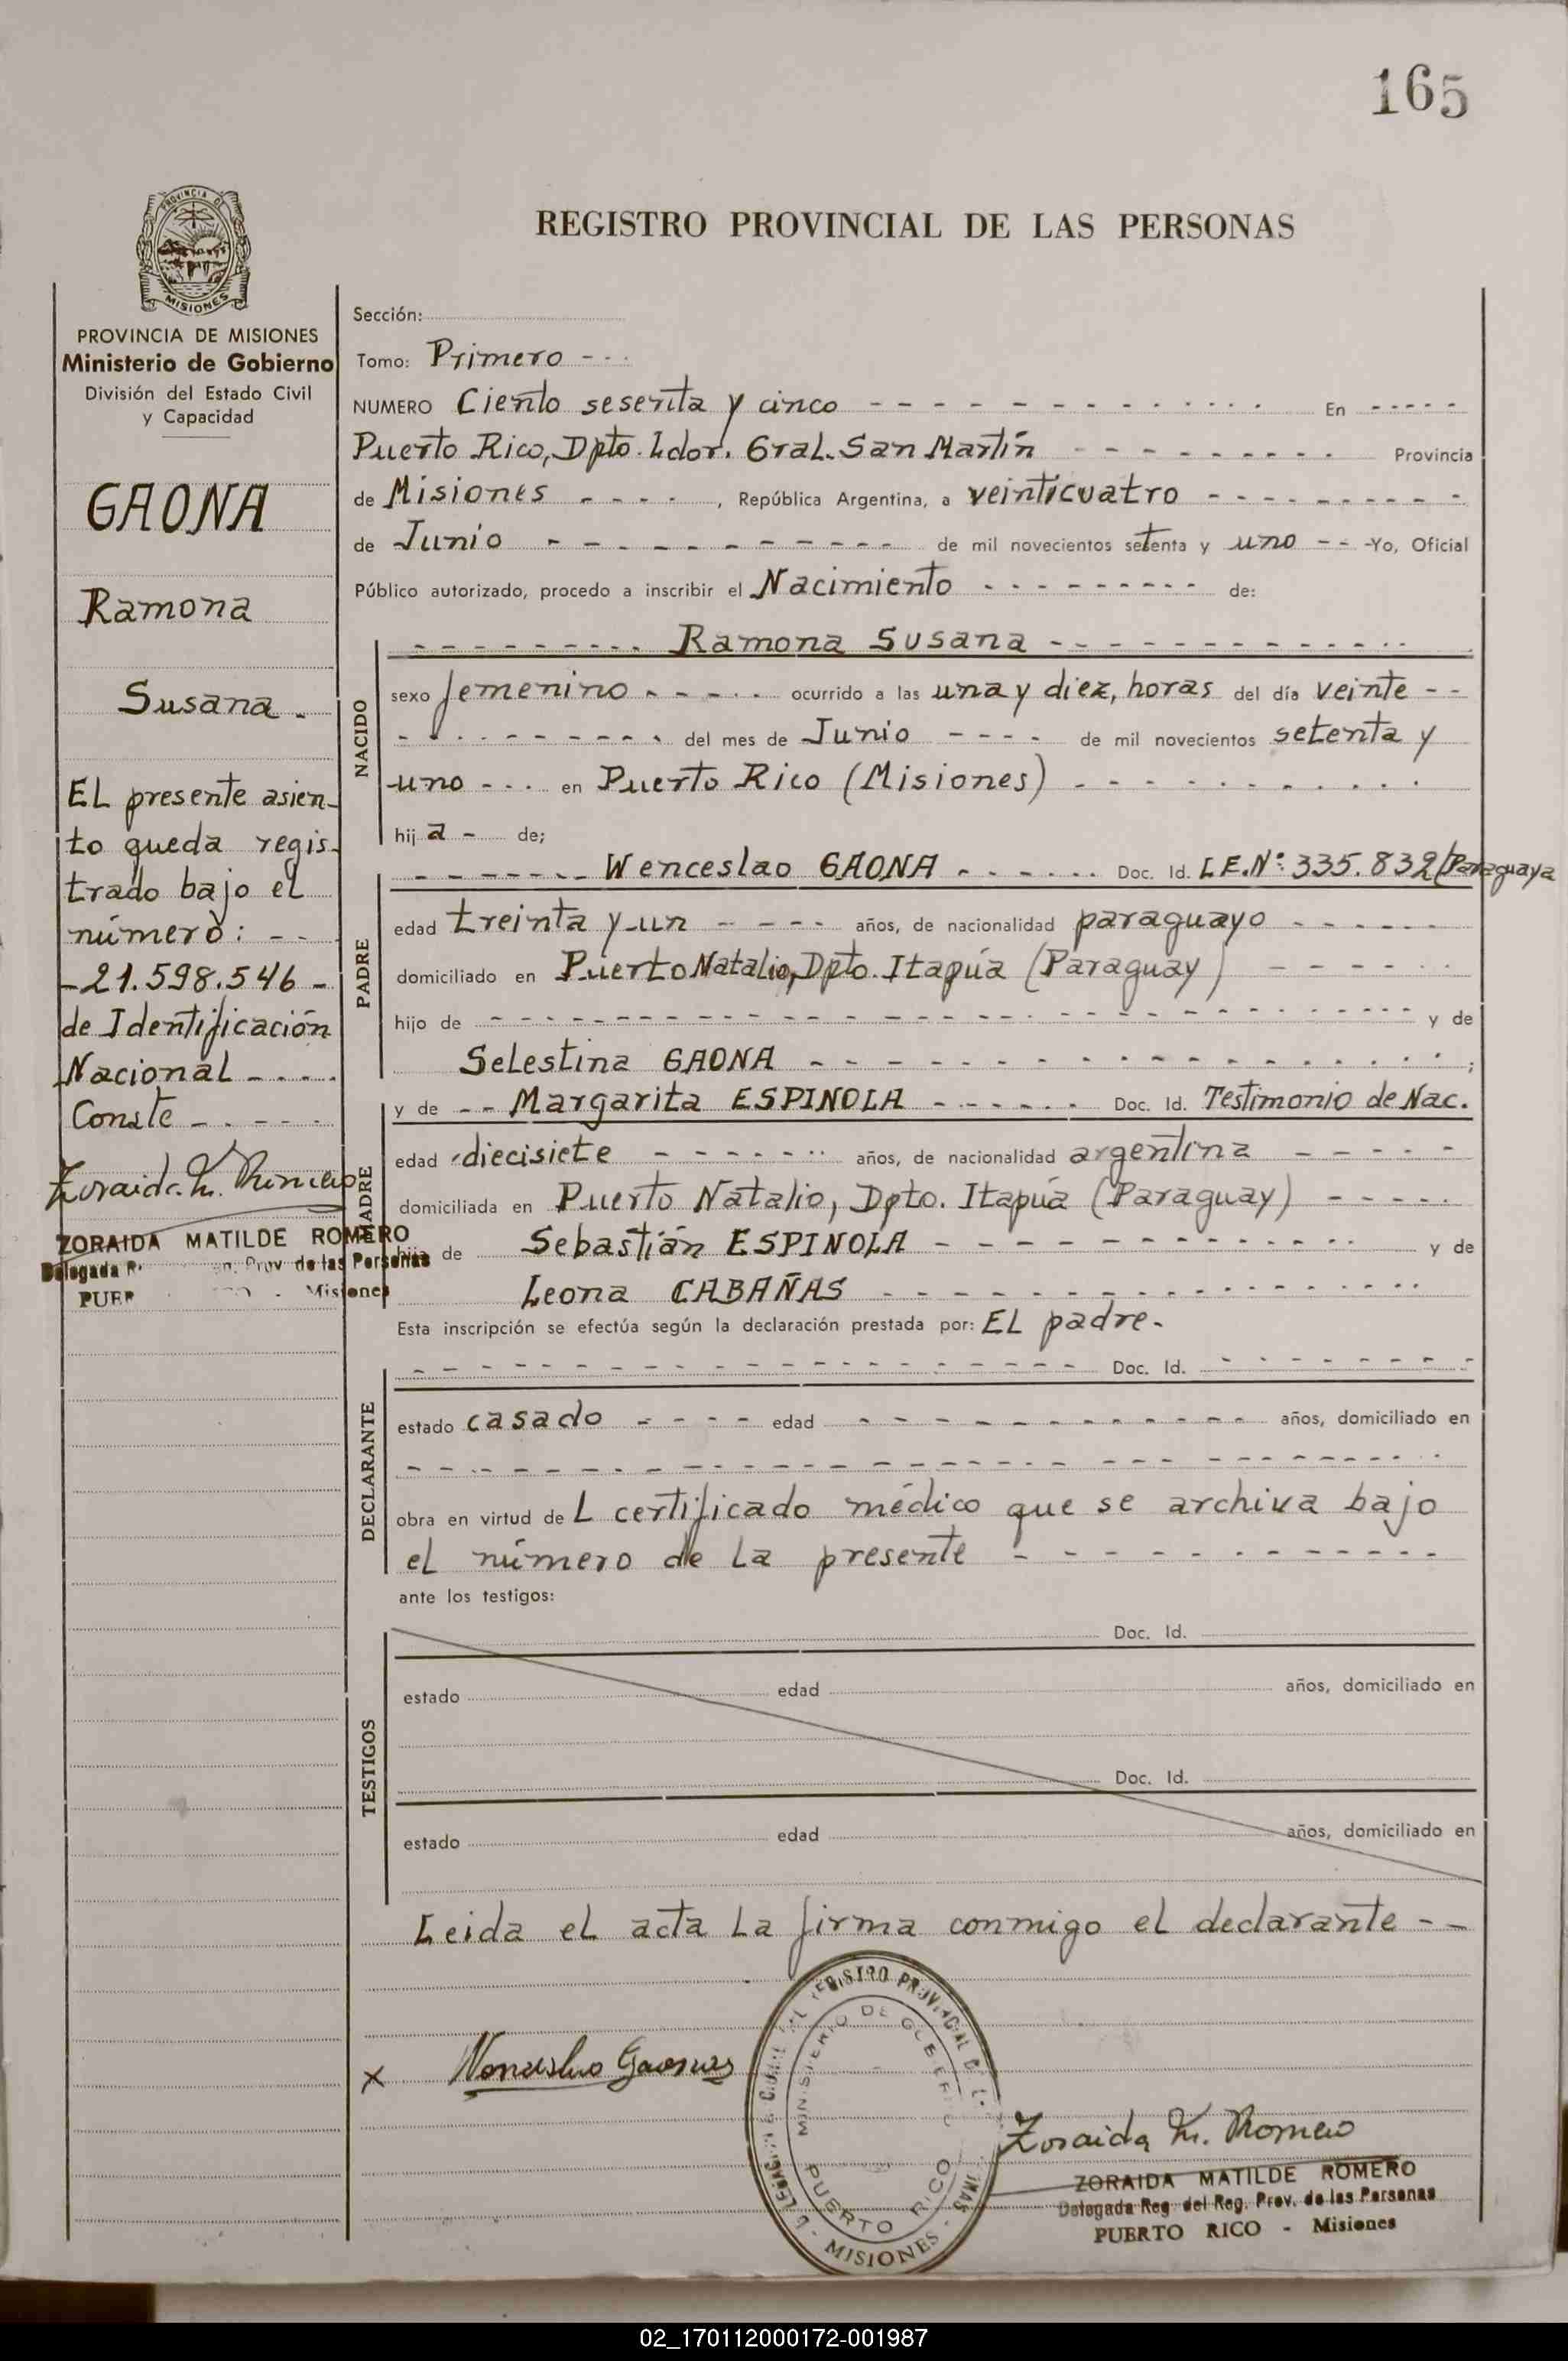 165
PROVINCIA DE
MISIONES
REGISTRO PROVINCIAL DE LAS PERSONAS
PROVINCIA DE MISIONES
Ministerio de Gobierno
División del Estado Civil
y Capacidad
GAONA
Ramona
Susana -
EL presente asien-
to queda regis-
trado bajo el
número: - -
- 21.598.546 -
de Identificación
Nacional - - - -
Conste - - - - -
Zoraida M. Romero
ZORAIDA MATILDE ROMERO
Delegada Prov de las Personas
Misiones
Sección:
Tomo: Primero - - -
NUMERO Ciento sesenta y cinco - - - En - - -
Puerto Rico, Dpto. Ldor. Gral. San Martín - - - Provincia
de Misiones - - - , República Argentina, a veinticuatro - - -
de Junio - - - de mil novecientos setenta y uno - - - Yo, Oficial
Público autorizado, procedo a inscribir el Nacimiento - - - de:
NACIDO
- - - Ramona Susana - - -
sexo femenino - - - ocurrido a las una y diez, horas del día veinte - -
- - - del mes de Junio - - - de mil novecientos setenta y
uno - - - en Puerto Rico (Misiones) - - -
hij a - de;
PADRE
- - - Wenceslao GAONA - - - Doc. Id. L.E.Nº: 335.832/Paraguaya
edad treinta y un - - - años, de nacionalidad paraguayo - - -
domiciliado en Puerto Natalio, Dpto. Itapúa (Paraguay) - - -
hijo de - - - y de
Selestina GAONA - - - ;
MADRE
y de - - Margarita ESPINOLA - - - Doc. Id. Testimonio de Nac.
edad diecisiete - - - años, de nacionalidad argentina - - -
domiciliada en Puerto Natalio, Dpto. Itapúa (Paraguay) - - -
hija de Sebastián ESPINOLA - - - y de
Leona CABAÑAS - - -
Esta inscripción se efectúa según la declaración prestada por: EL padre.
DECLARANTE
- - - Doc. Id. - - -
estado casado - - - edad - - - años, domiciliado en
- - -
obra en virtud de L certificado médico que se archiva bajo
el número de la presente - - -
ante los testigos:
TESTIGOS
Doc. Id.
estado edad años, domiciliado en
Doc. Id.
estado edad años, domiciliado en
Leida el acta la firma conmigo el declarante - -
x Wenceslao Gaona
REGISTRO PROVINCIAL
MINISTERIO DE GOBIERNO
PUERTO RICO
- MISIONES -
Zoraida M. Romero
ZORAIDA MATILDE ROMERO
Delegada Reg del Reg. Prov. de las Personas
PUERTO RICO - Misiones
02_170112000172-001987